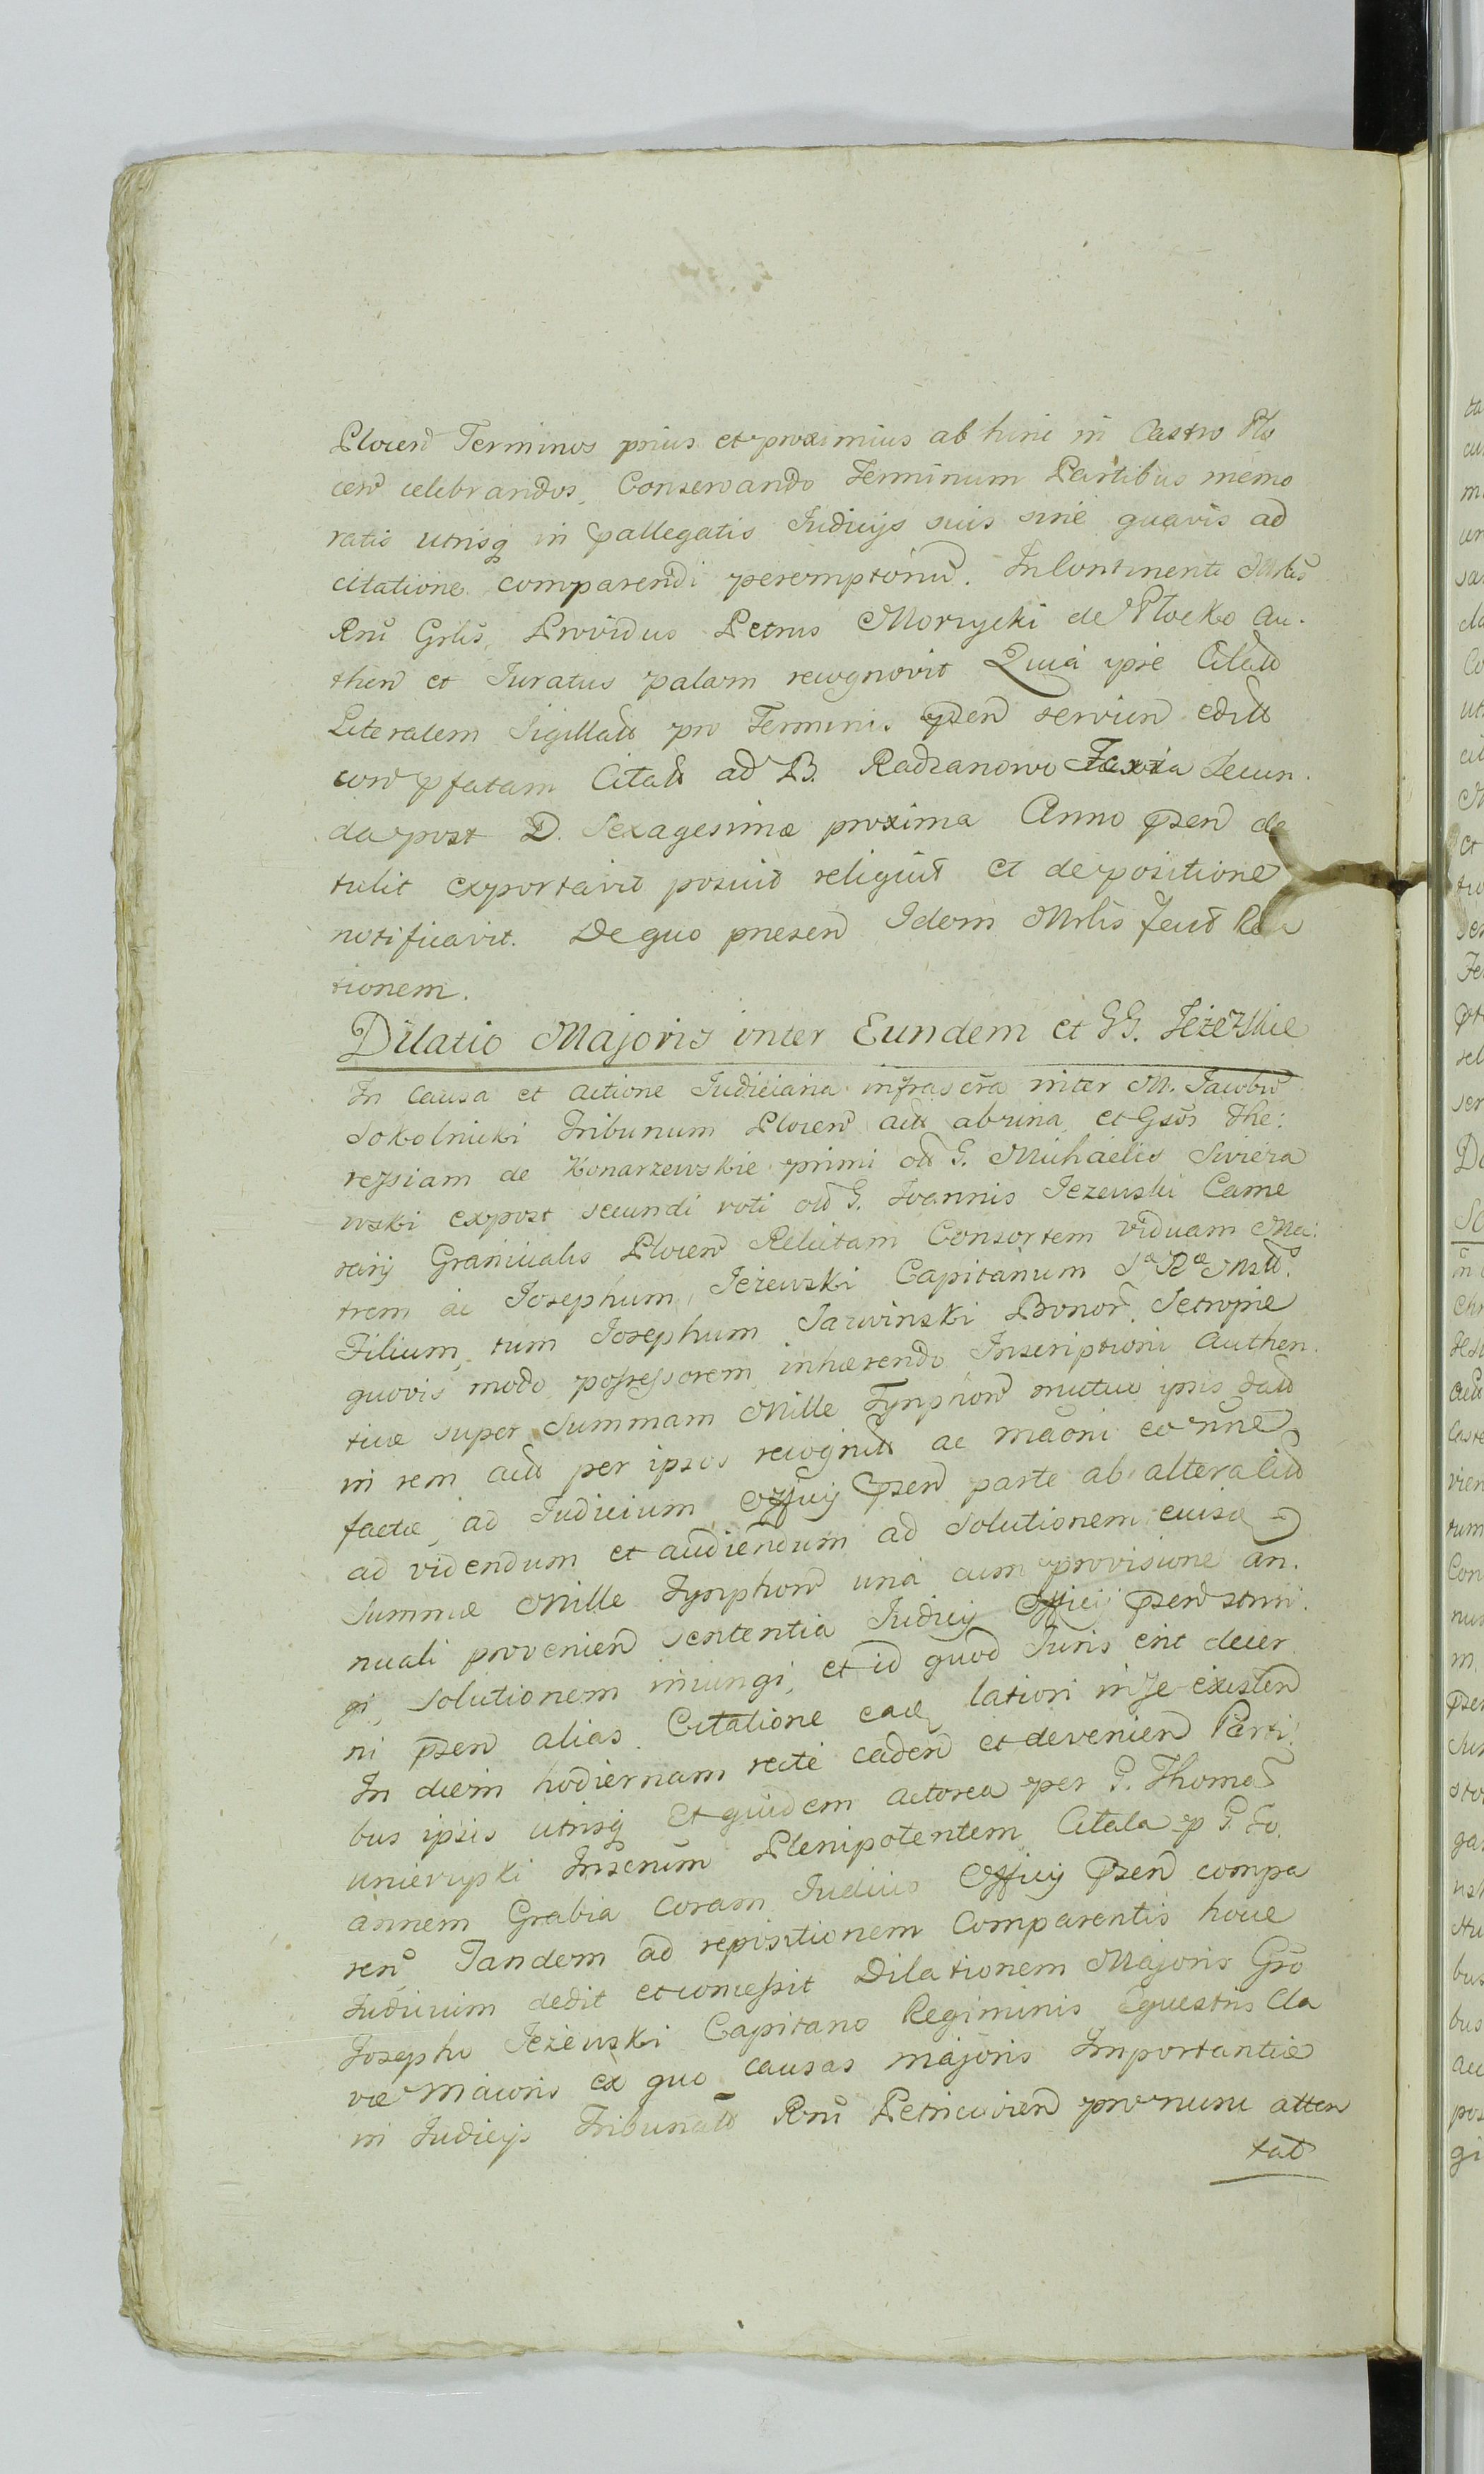 Plocen Terminos prius et proximius ab hinc in Castro Plo
cen celebrandos, Conservando Terminum Partibus memo
ratis utrisq in pallegatis Judicijs suis sine quavis ad
citatione comparendi peremptoriu. Incontinenti Mrlis
Rni Grlis, Providus Petrus Morzycki de Plocko au.
then et Juratus palam recognovit Quia ipse Citatt
Literalem Sigillatt pro Terminis psen servien editt
con pfatam Citatt ad B. Radzanowo Feria Secun.
da post D. Sexagesimæ proxima Anno psen de
tulit exportavit posuit reliquit et depositione
notificavit. De quo presen Idem Mrlis fecit Rela
tionem.
Dilatio Majoris inter Eundem et GG. Jeżewskie
In causa et actione Judiciaria infrascra inter M. Jacobu
Sokolnicki Tribunum Plocen act abuna et Gsos The:
ressiam de Konarzewskie primi ott G. Michaelis Siviera
wski expost secundi voti ott G. Joannis Jezewski Came
rarij Granicialis Plocen Relictam Consortem viduam Ma:
trem ac Josephum Jeżewski Capitanum Sæ Ræ Mstt.
Filium, tum Josephum Jarwinski Bonor Setropie
quovis modo possessorem inhærendo Inscriptioni authen.
ticæ super Summam Mille Tynphon mutuo ipsis datt
in rem act per ipsos recognitt ac maoni eo nne
factæ, ad Judicium Officij psen parte ab altera Citt
ad videndum et audiendum ad Solutionem eiusd
Summæ Mille Tynphon una cum provisione an.
nuali provenien sententia Judicij Officij psen strin.
gi, Solutionem iniungi, et id quod Juris erit decer
ni psen alias Citatione ead latiori in se existen
In diem hodiernam recte caden et devenien Parti.
bus ipsis utrisq Et quidem actorea per G. Thomã
Unierzyski Inscrium Plenipotentem Citata p G. Jo.
annem Grabia Coram Judicio Officij psen compa
ren Tandem ad repositionem Comparentis hocce
Judicium dedit et concessit Dilationem Majoris Gro
Josepho Jeżewski Capitano Regiminis Equestris Cla
væ Maioris ex quo causas majoris Importantiæ
in Judicijs Tribunatt Rni Petricovien pro nunc atten
tat